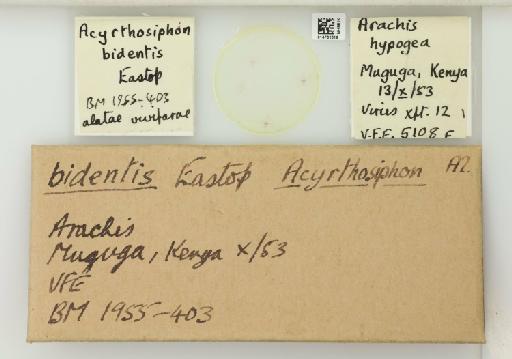 Acyrthosiphon
bidentis
Eastop
BM 1955-403
alatae viviparae
Arachis
hypogea
Muguga, Kenya
13/X/53
Virus xpt. 12
V.F.E. 5108 E
bidentis Eastop Acyrthosiphon A2.
Arachis
Muguga, Kenya X/53
VFE
BM 1955-403